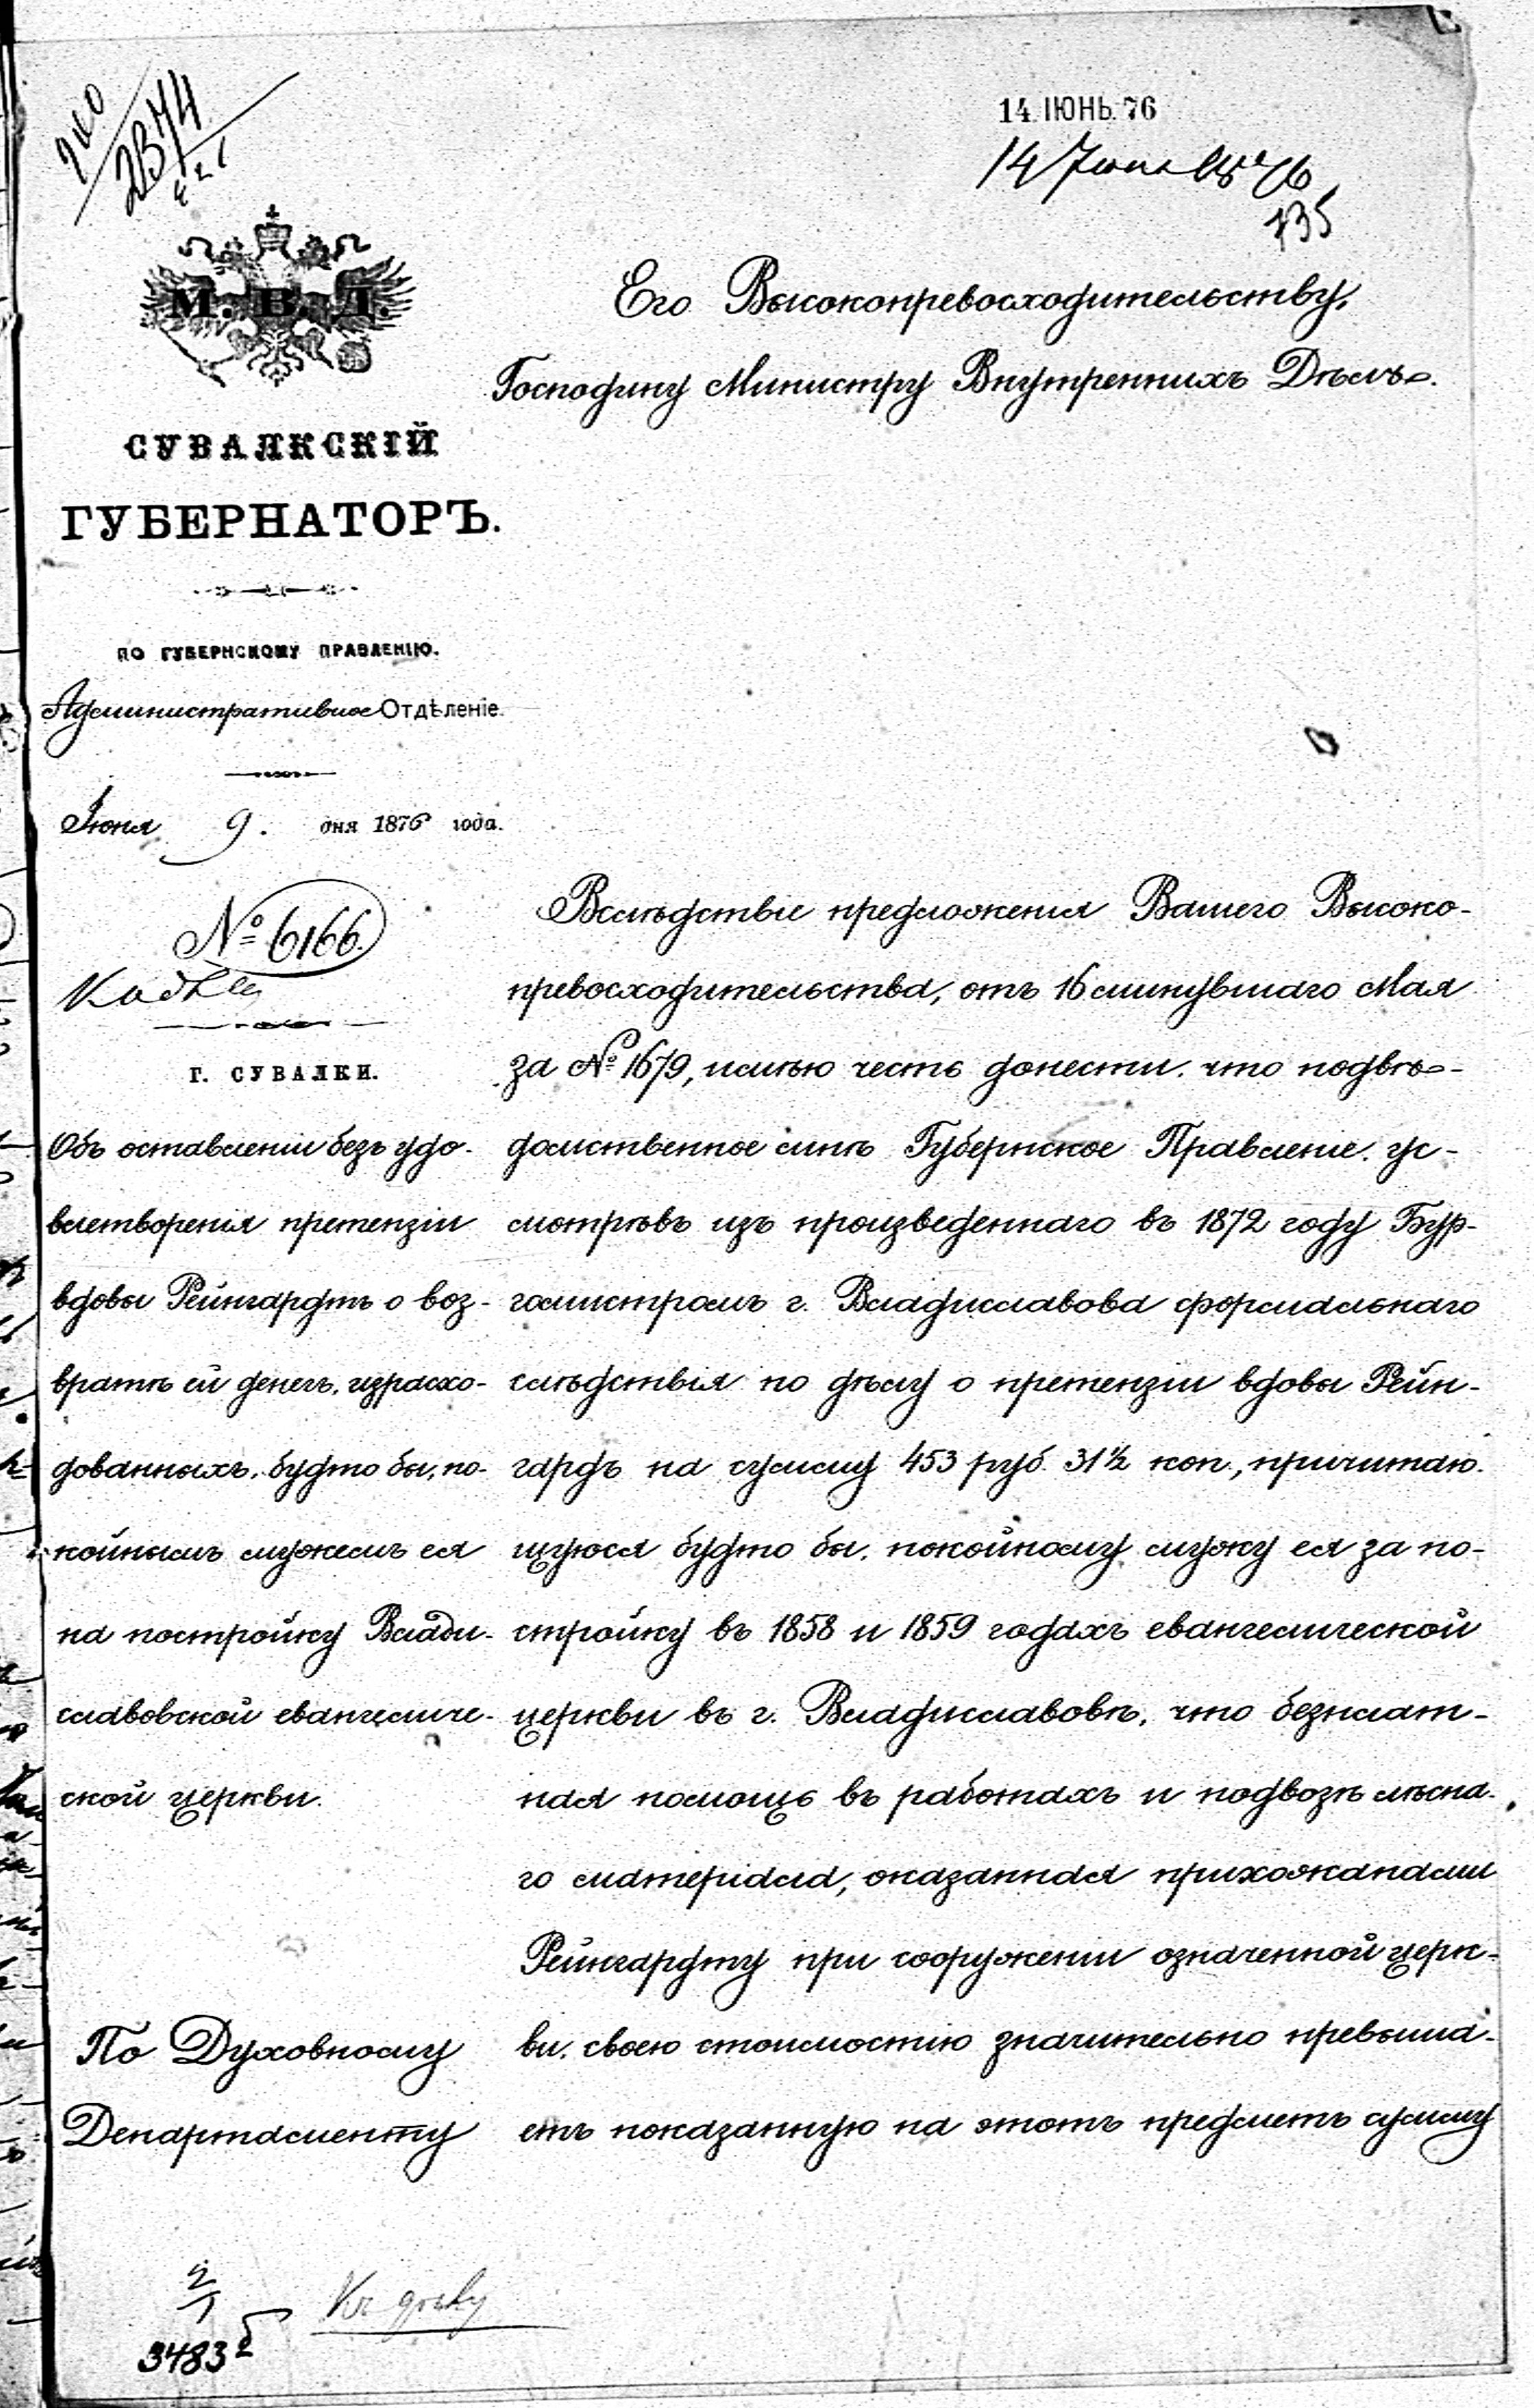 14 ІЮНЬ. 76
14 Іюня 1876
735
2374
М. В. Д.
СУВАЛКСКІЙ
ГУБЕРНАТОРЪ.
ПО ГУБЕРНСКОМУ ПРАВЛЕНІЮ.
Административное Отдѣленіе.
Іюня 9. дня 1876 года.
№ 6166.
Г. СУВАЛКИ.
Объ оставленіи безъ удо-
влетворенія претензіи
вдовы Рейнгардтъ о воз-
вратѣ ей денегъ, израсхо-
дованныхъ, будто бы, по-
койнымъ мужемъ ея
на постройку Влади-
славовской евангеличе-
ской церкви.
По Духовному
Департаменту
Его Высокопревосходительству,
Господину Министру Внутреннихъ Дѣлъ.
Вслѣдствіе предложенія Вашего Высоко-
превосходительства, отъ 16 минувшаго Мая
за № 1679, имѣю честь донести, что подвѣ-
домственное мнѣ Губернское Правленіе, ус-
мотрѣвъ изъ произведеннаго въ 1872 году Бур-
гомистромъ г. Владиславова формальнаго
слѣдствія по дѣлу о претензіи вдовы Рейн-
гардъ на сумму 453 руб. 31½ коп., причитаю-
щуюся будто бы, покойному мужу ея за по-
стройку въ 1858 и 1859 годахъ евангелической
церкви въ г. Владиславовѣ, что безплат-
ная помощь въ работахъ и подвозѣ лѣсна-
го матеріала, оказанная прихожанами
Рейнгардту при сооруженіи означенной церк-
ви, своею стоимостію значительно превыша-
етъ показанную на этотъ предметъ сумму
Къ дѣлу
3483